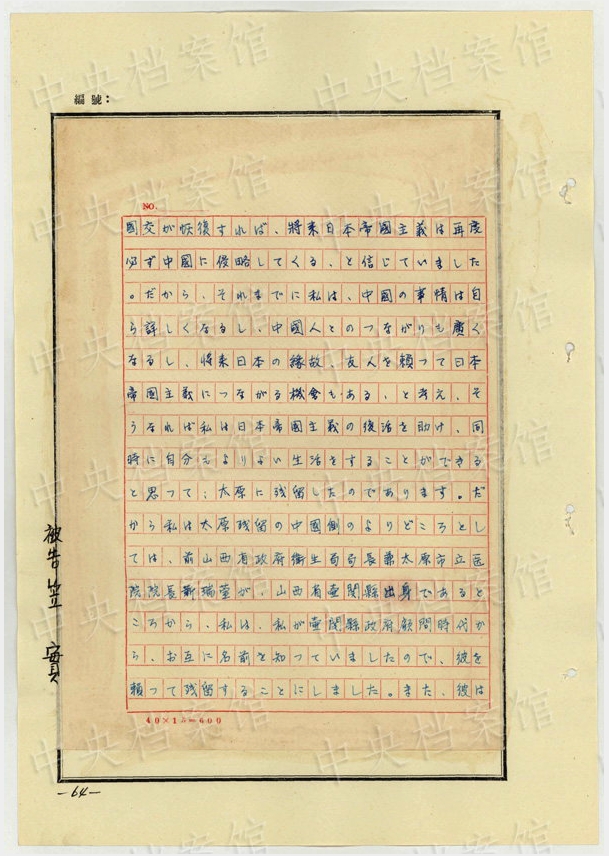 編號：
NO.
国交が恢復すれば、將来日本帝國主義は再度
必ず中國に侵略してくる、と信じていました
。だから、それまでに私は、中國の事情は自
ら詳しくなるし、中國人とのつながりも廣く
なるし、將来日本の縁故、友人を頼って日本
帝國主義につながる機会もある、と考え、そ
うなれば私は日本帝國主義の復活を助け、同
時に自分もよりよい生活をすることができる
と思って、太原に残留したのであります。だ
から私は太原残留の中國側のよりどころとし
ては、前山西省政府衛生局局長兼太原市立医
院院長靳瑞萱が、山西省壷関縣出身であると
ころから、私は、私が壷関縣政府顧問時代か
ら、お互に名前を知っていましたので、彼を
頼って残留することにしました。また、彼は
40×15=600
被告笠 實
—64—
中央档案馆